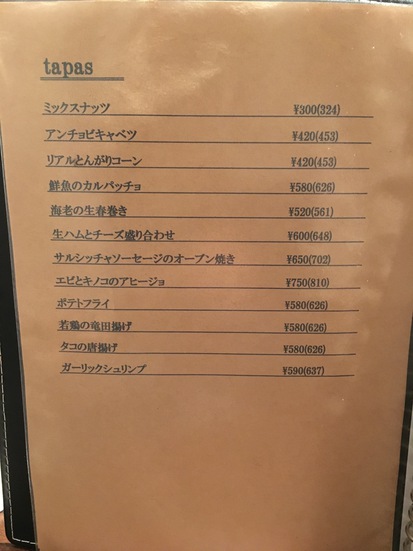 tapas
ミックスナッツ ¥300(324)
アンチョビキャベツ ¥420(453)
リアルとんがりコーン ¥420(453)
鮮魚のカルパッチョ ¥580(626)
海老の生春巻き ¥520(561)
生ハムとチーズ盛り合わせ ¥600(648)
サルシッチャソーセージのオーブン焼き ¥650(702)
エビとキノコのアヒージョ ¥750(810)
ポテトフライ ¥580(626)
若鶏の竜田揚げ ¥580(626)
タコの唐揚げ ¥580(626)
ガーリックシュリンプ ¥590(637)